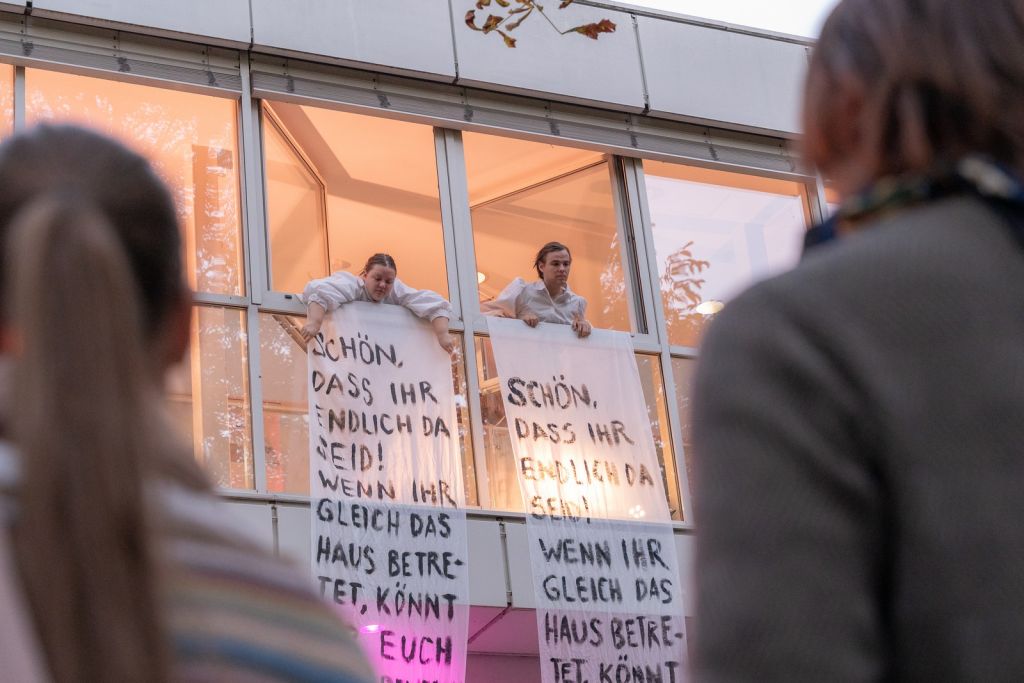 SCHÖN,
DASS IHR
ENDLICH DA
SEID!
WENN IHR
GLEICH DAS
HAUS BETRE-
TET, KÖNNT
EUCH
SCHÖN,
DASS IHR
ENDLICH DA
SEID!
WENN IHR
GLEICH DAS
HAUS BETRE-
TET, KÖNNT